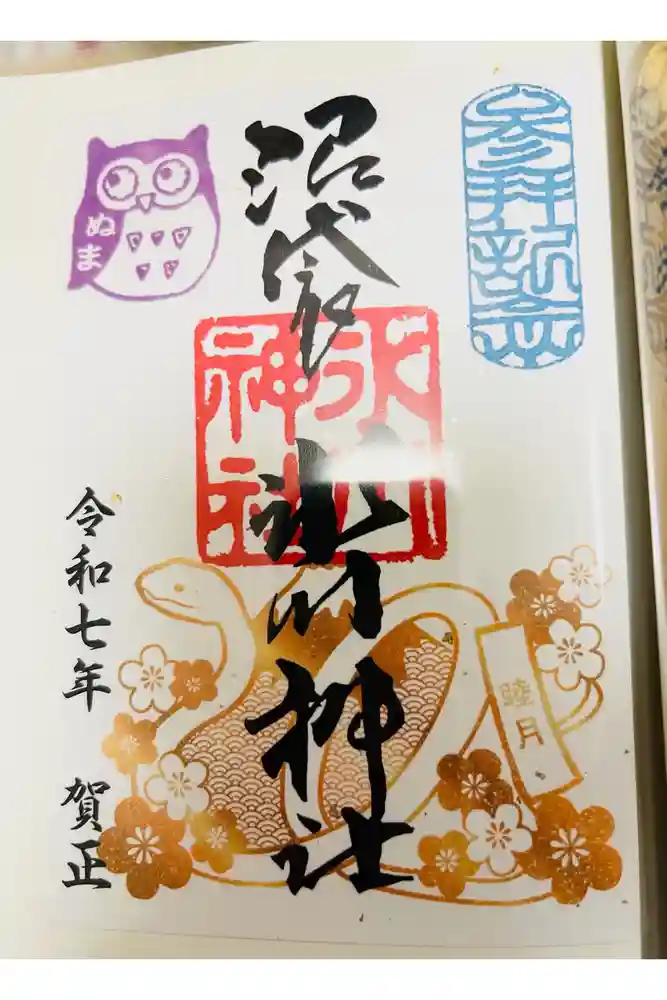 参拝記章
沼袋
氷川神社
氷川
神社
ぬま
睦月
令和七年 賀正